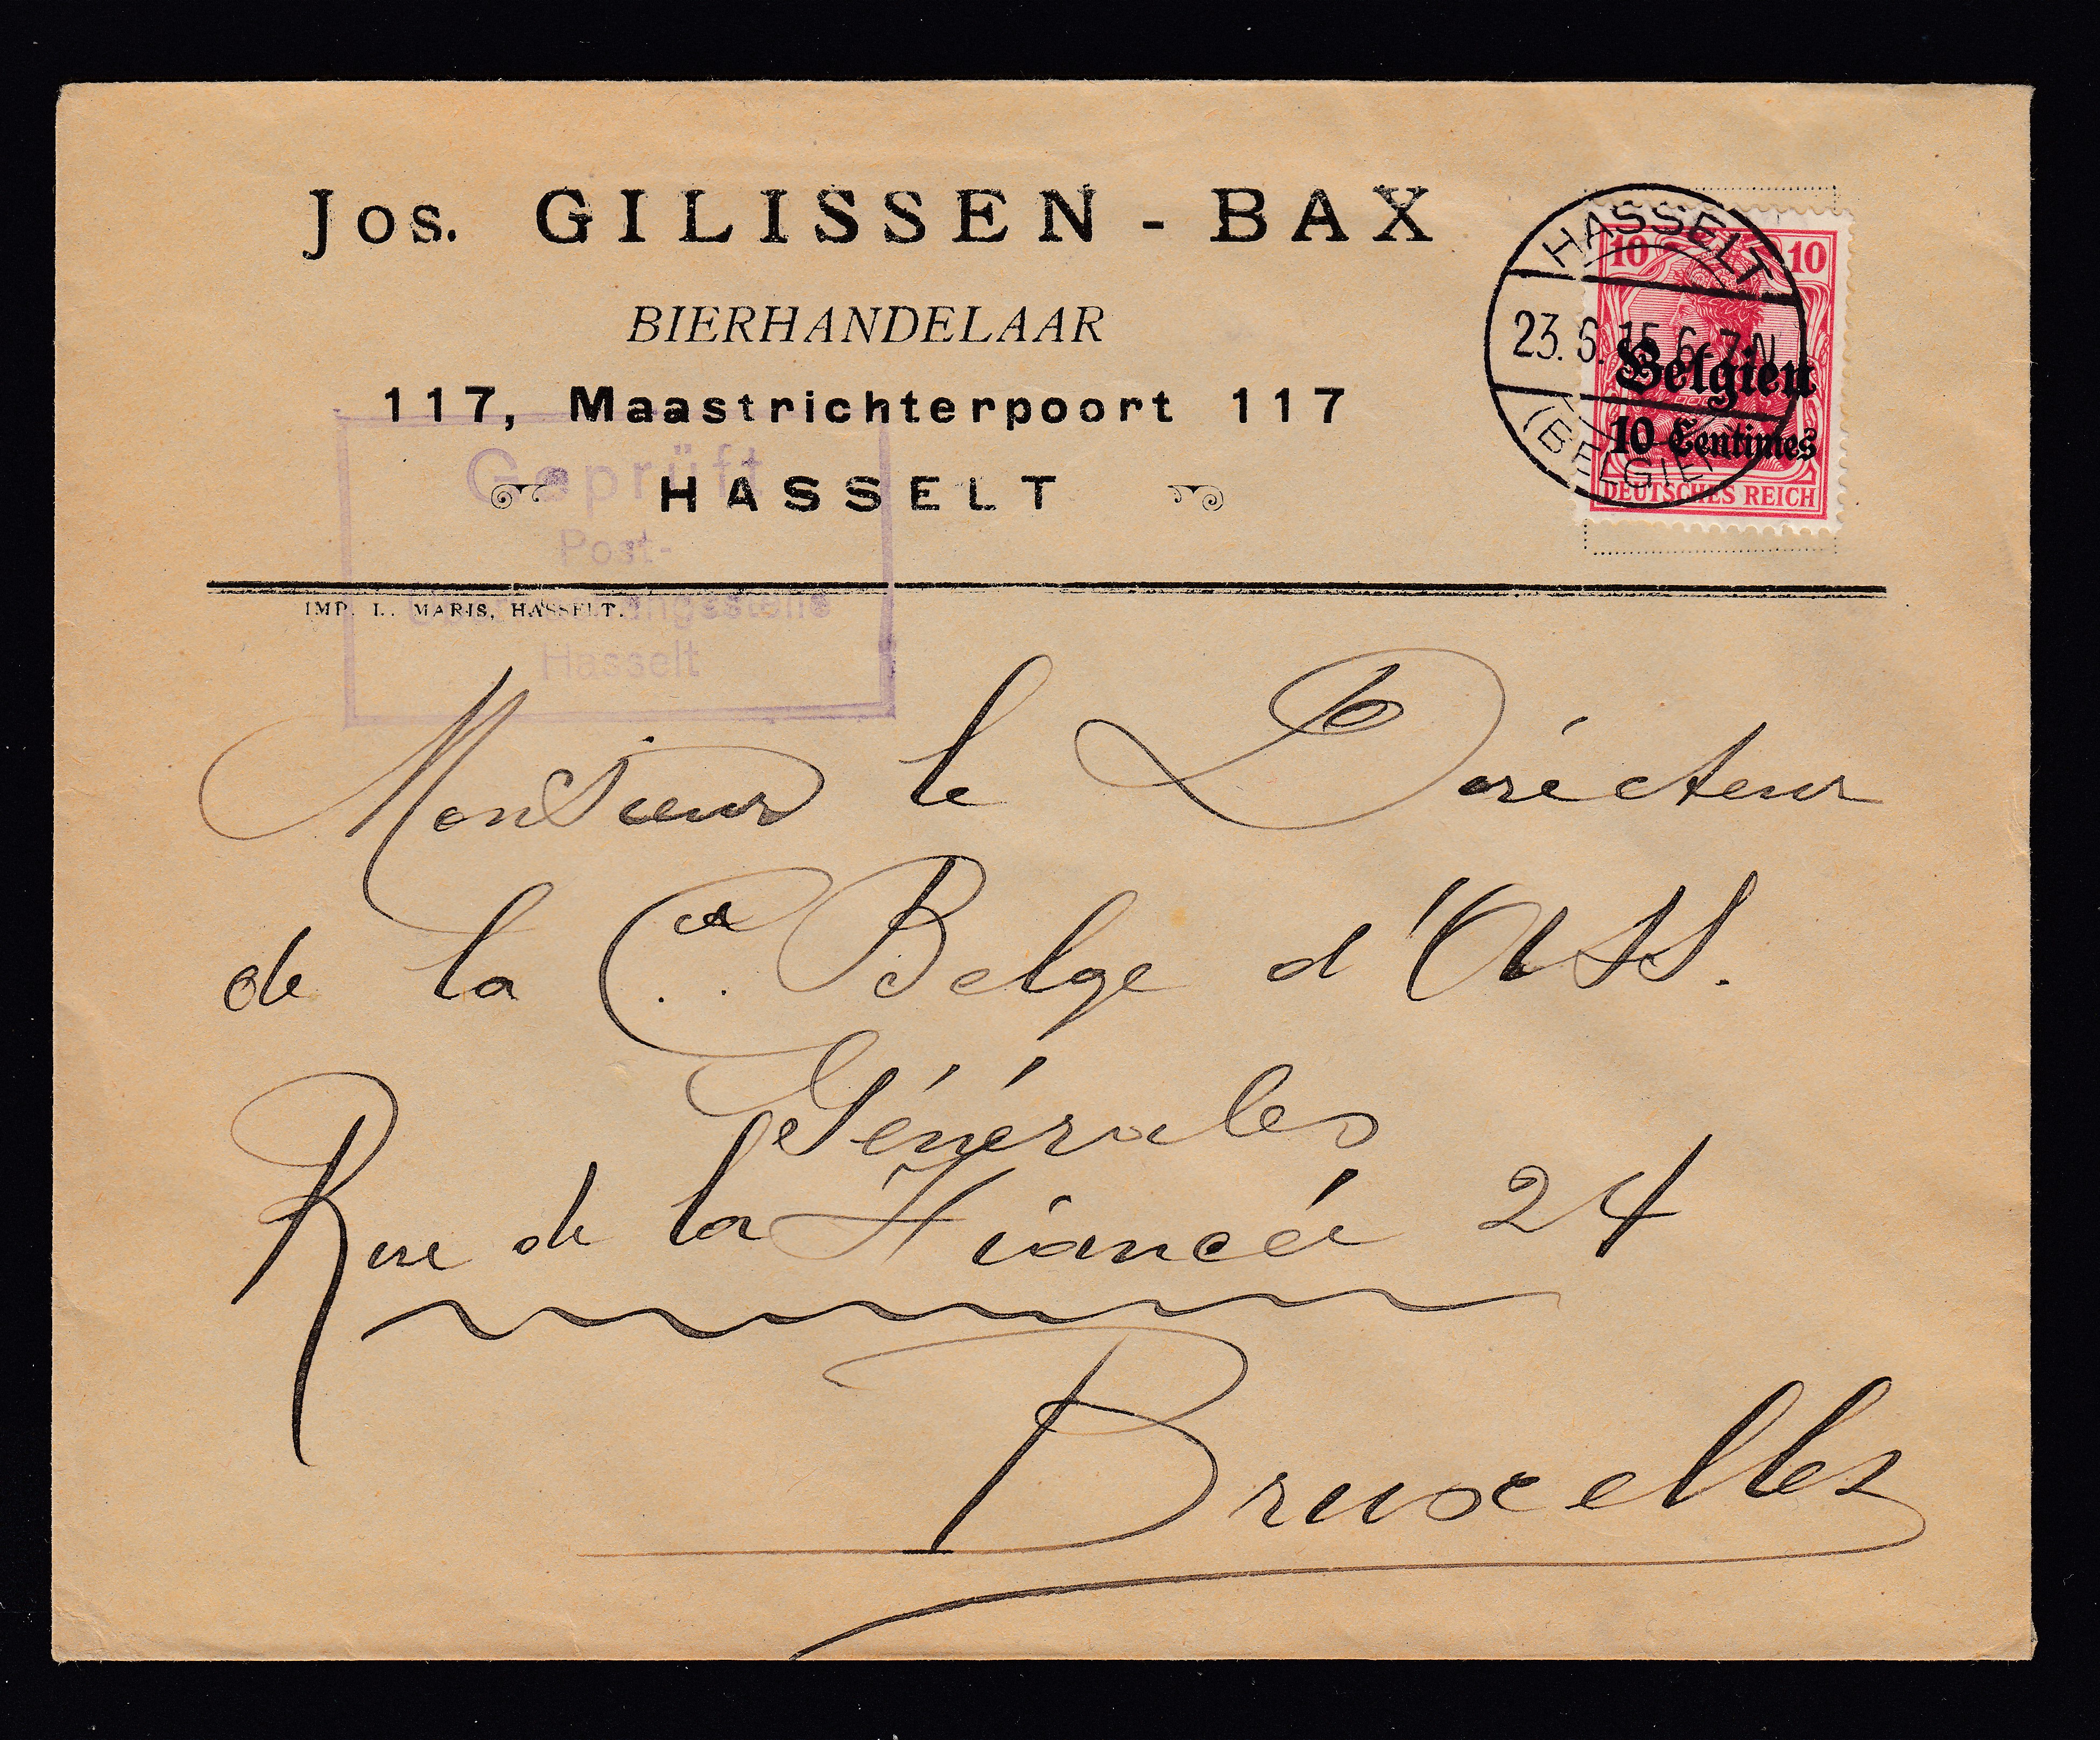 Jos. GILISSEN - BAX
BIERHANDELAAR
117, Maastrichterpoort 117
HASSELT
IMP. L. MARIS, HASSELT.
Geprüft
Post-
Hasselt
HASSELT
23.6.15.6-7N
(BELGIEN)
10 10
Belgien
10 Centimes
DEUTSCHES REICH
Monsieur le Dirécteur
de la Cie Belge d'ASS.
Générales
Rue de la Fiancée 24
Bruxelles